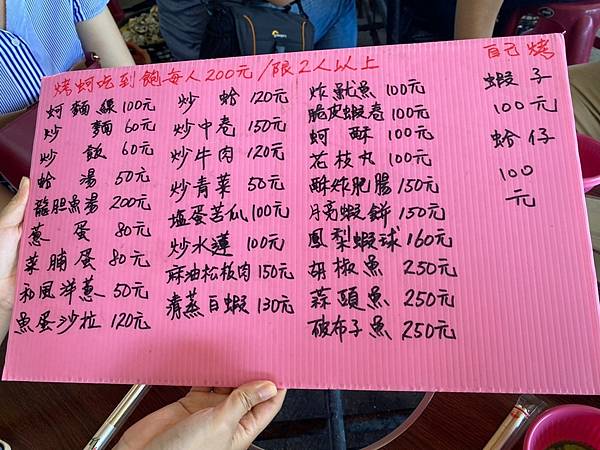 烤蚵吃到飽每人200元/限2人以上
蚵麵線100元
炒麵60元
炒飯60元
蛤湯50元
龍胆魚湯200元
蔥蛋80元
菜脯蛋80元
和風洋蔥50元
魚蛋沙拉120元
炒蛤120元
炒中卷150元
炒牛肉120元
炒青菜50元
塩蛋苦瓜100元
炒水蓮100元
麻油松板肉150元
清蒸白蝦130元
炸魷魚100元
脆皮蝦卷100元
蚵酥100元
花枝丸100元
酥炸肥腸150元
月亮蝦餅150元
鳳梨蝦球160元
胡椒魚250元
蒜頭魚250元
破布子魚250元
自己烤
蝦子
100元
蛤仔
100
元
Lowepro